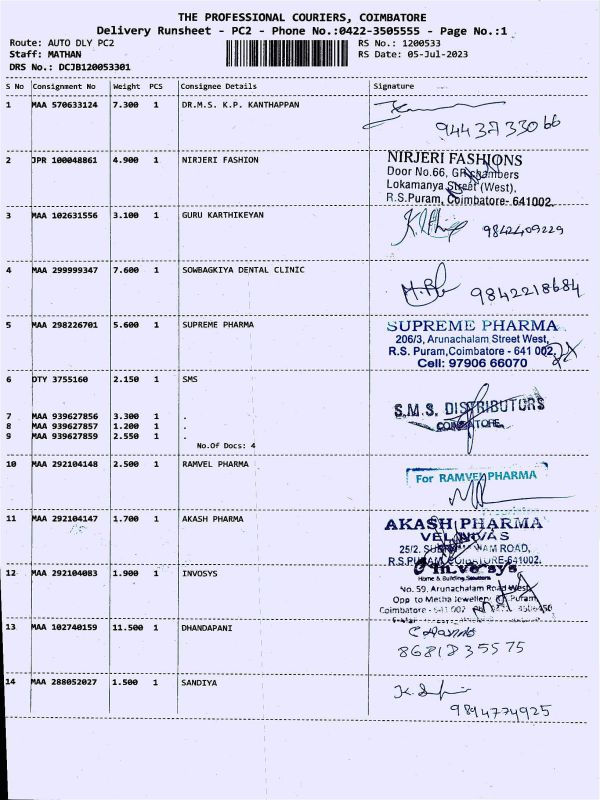 THE PROFESSIONAL COURIERS, COIMBATORE
Delivery Runsheet - PC2 - Phone No.:0422-3505555 - Page No.:1
Route: AUTO DLY PC2 RS No.: 1200533
Staff: MATHAN RS Date: 05-Jul-2023
DRS No.: DCJB120053301
S No Consignment No Weight PCS Consignee Details Signature
1 MAA 570633124 7.300 1 DR.M.S. K.P. KANTHAPPAN
9443733066
2 JPR 100048861 4.900 1 NIRJERI FASHION
NIRJERI FASHIONS
Door No.66, GR chambers
Lokamanya Street (West),
R.S.Puram, Coimbatore- 641002.
3 MAA 102631556 3.100 1 GURU KARTHIKEYAN
9842409229
4 MAA 299999347 7.600 1 SOWBAGKIYA DENTAL CLINIC
9842218684
5 MAA 298226701 5.600 1 SUPREME PHARMA
SUPREME PHARMA
206/3, Arunachalam Street West,
R.S. Puram,Coimbatore - 641 002.
Cell: 97906 66070
6 DTY 3755160 2.150 1 SMS
S.M.S. DISTRIBUTORS
7 MAA 939627856 3.300 1 .
8 MAA 939627857 1.200 1 .
9 MAA 939627859 2.550 1 .
No.Of Docs: 4
10 MAA 292104148 2.500 1 RAMVEL PHARMA
For RAMVEL PHARMA
11 MAA 292104147 1.700 1 AKASH PHARMA
AKASH PHARMA
VEL NIVAS
25/2, ROAD,
R.S.PURAM, COIMBATORE-641002.
12 MAA 292104083 1.900 1 INVOSYS
Invosys
Home & Building Solutions
No. 59, Arunachalam Road West
Opp to Metha Jewellery Puram,
Coimbatore - 641 002
13 MAA 102740159 11.500 1 DHANDAPANI
14 MAA 288052027 1.500 1 SANDIYA
9894774925